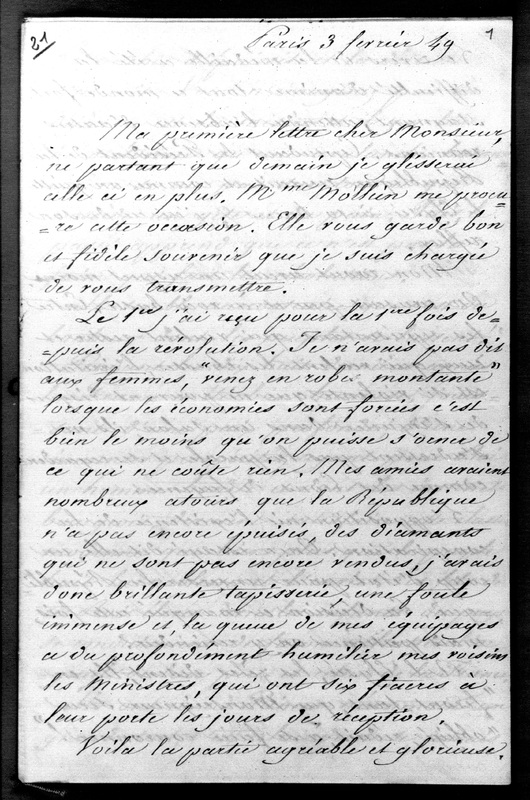 21
Paris 3 fevrier 49
1
Ma première lettre cher Monsieur,
ne partant que demain je glisserai
celle ci en plus. Mme Mollien me procu-
=re cette occasion. Elle vous garde bon
et fidèle souvenir que je suis chargée
de vous transmettre.
Le 1er j'ai reçu pour la 1ere fois de-
=puis la révolution. Je n'avais pas dit
aux femmes, "venez en robe montante"
lorsque les économies sont forcées c'est
bien le moins qu'on puisse s'orner de
ce qui ne coûte rien. Mes amies avaient
nombreux atours que la République
n'a pas encore épuisés, des diamants
qui ne sont pas encore vendus, j'avais
donc brillante tapisserie, une foule
immense et la queue de mes équipages
a du profondément humilier mes voisins
les Ministres, qui ont six fiacres à
leur porte les jours de réception.
Voila la partie agréable et glorieuse.